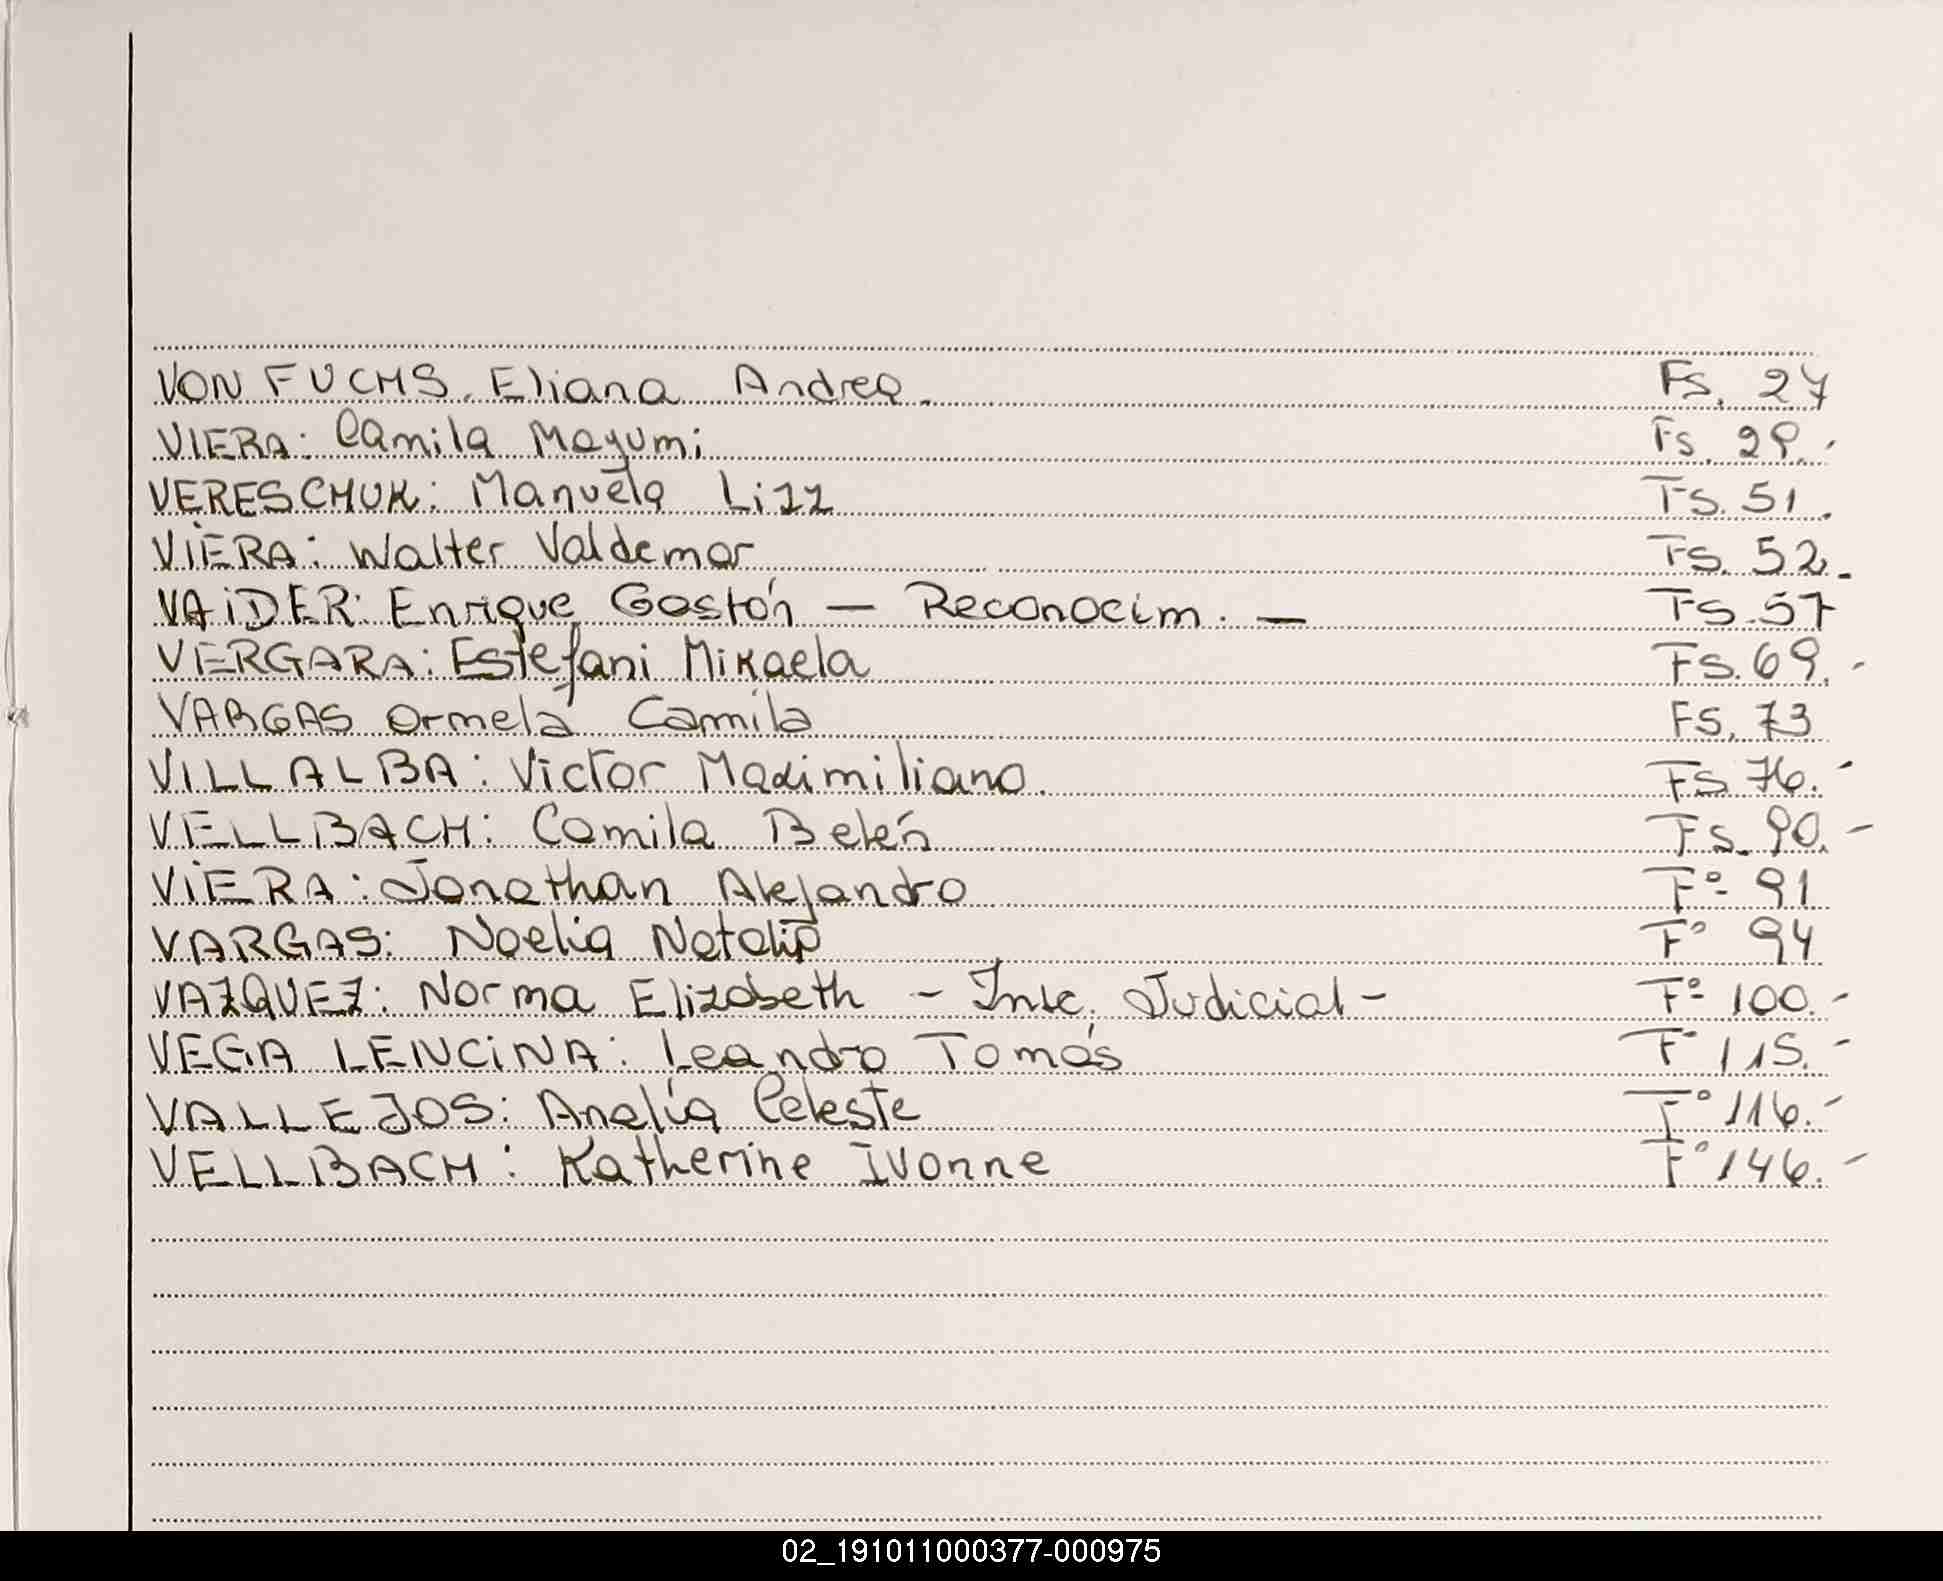 VON FUCHS. Eliana Andrea. Fs. 27
VIERA: Camila Mayumi Fs. 29.-
VERESCHUK: Manuela Lizz Fs. 51.
VIERA: Walter Valdemar Fs. 52.-
VAIDER: Enrique Gastón — Reconocim. — Fs. 57
VERGARA: Estefani Mikaela Fs. 69.-
VARGAS Ornela Camila Fs. 73
VILLALBA: Victor Maximiliano. Fs 76.-
VELLBACH: Camila Belén Fs. 90.-
VIERA: Jonathan Alejandro F° 91
VARGAS: Noelia Natalia F° 94
VAZQUEZ: Norma Elizabeth - Insc. Judicial - F° 100.-
VEGA LENCINA: Leandro Tomás F° 115.-
VALLEJOS: Analía Celeste F° 116.-
VELLBACH: Katherine Ivonne F° 146.-
02_191011000377-000975